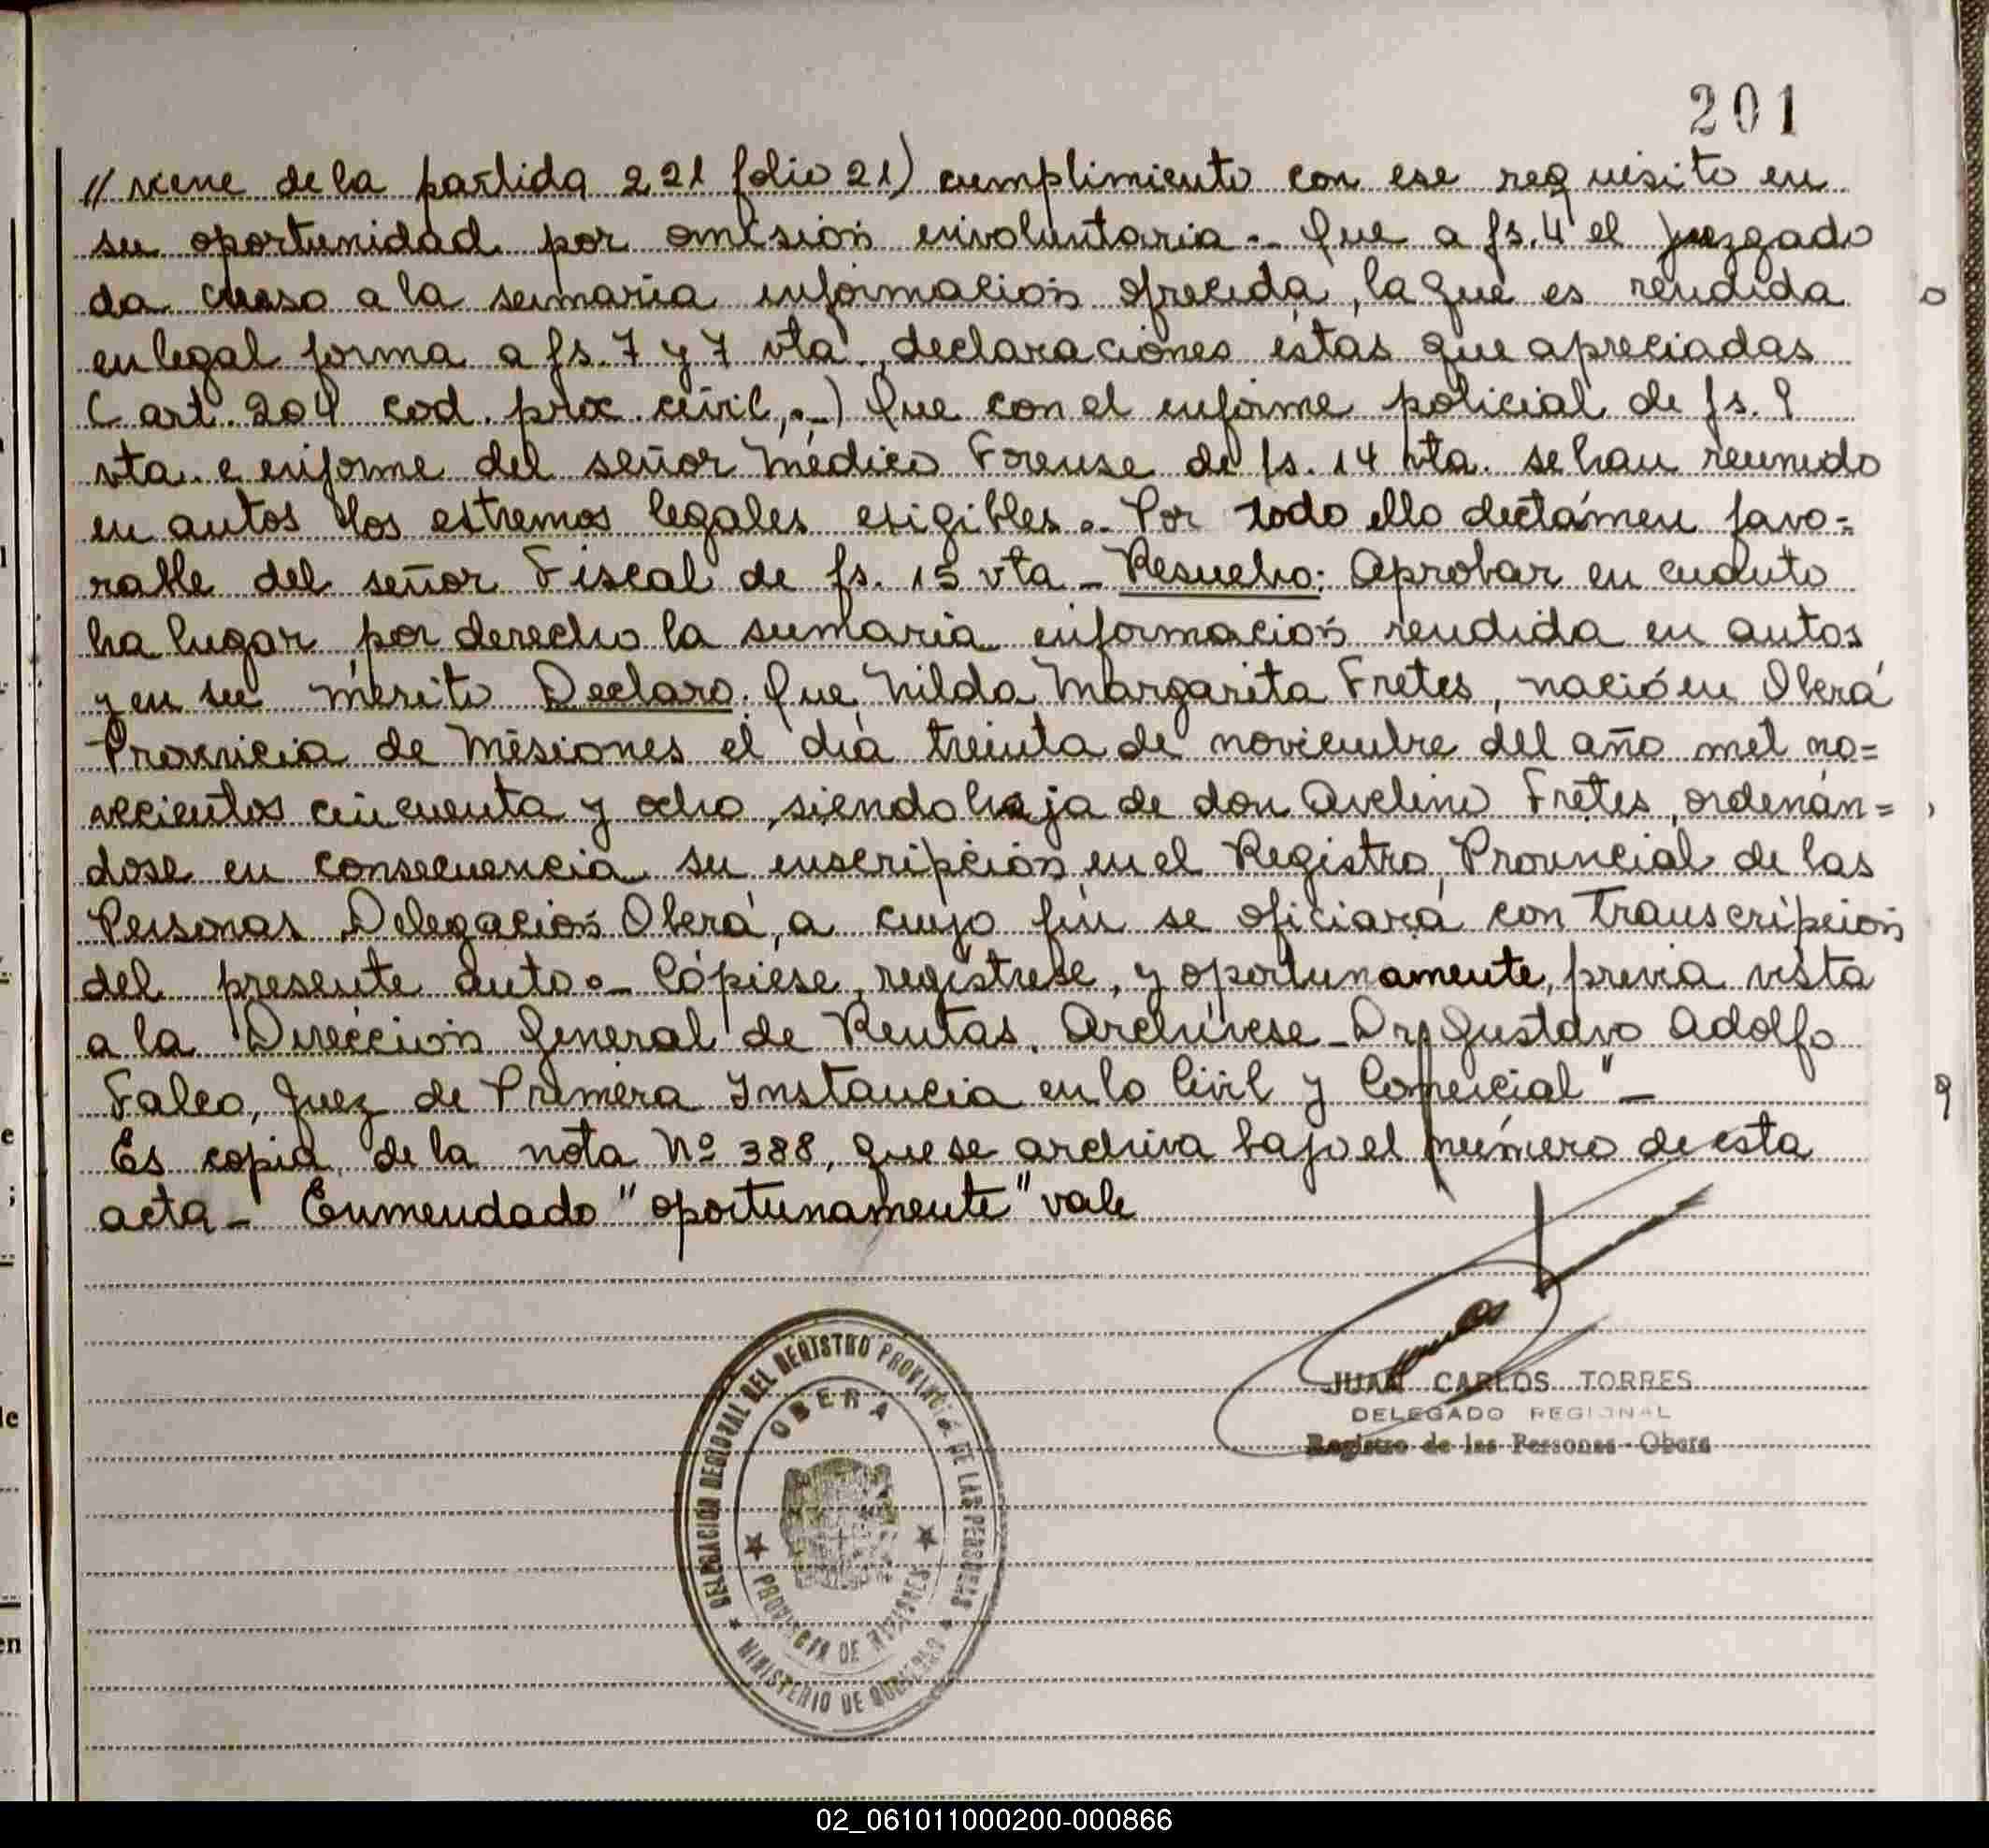 201
// viene de la partida 221 folio 21) cumplimiento con ese requisito en
su oportunidad por omisión involuntaria.- Que a fs. 4 el Juzgado
da curso a la sumaria información ofrecida, la que es rendida
en legal forma a fs. 7 y 7 vta., declaraciones éstas que apreciadas
( art. 204 cod. proc. civil,.-) Que con el informe policial de fs. 9
vta. e informe del señor Médico Forense de fs. 14 vta. se han reunido
en autos los estremos legales esigibles.- Por todo ello dictámen favo=
rable del señor Fiscal de fs. 15 vta - Resuelvo: Aprobar en cuanto
ha lugar por derecho la sumaria información rendida en autos
y en su mérito Declaro: Que, Nilda Margarita Fretes, nació en Oberá
Provincia de Misiones el día treinta de noviembre del año mil no=
vecientos cincuenta y ocho, siendo hija de don Avelino Fretes, ordenán=
dose en consecuencia su inscripción en el Registro Provincial de las
Personas Delegación Oberá, a cuyo fin se oficiará con transcripción
del presente auto.- Cópiese, regístrese, y oportunamente, previa vista
a la Dirección General de Rentas. Archívese - Dr. Gustavo Adolfo
Falco, Juez de Primera Instancia en lo Civil y Comercial" -
Es copia de la nota Nº 388, que se archiva bajo el número de esta
acta - Enmendado "oportunamente" vale
JUAN CARLOS TORRES
DELEGADO REGIONAL
Registro de las Personas - Obera
DELEGACIÓN REGIONAL DEL REGISTRO PROVINCIAL DE LAS PERSONAS
OBERA
PROVINCIA DE MISIONES
MINISTERIO DE GOBIERNO
e
;
le
en
02_061011000200-000866